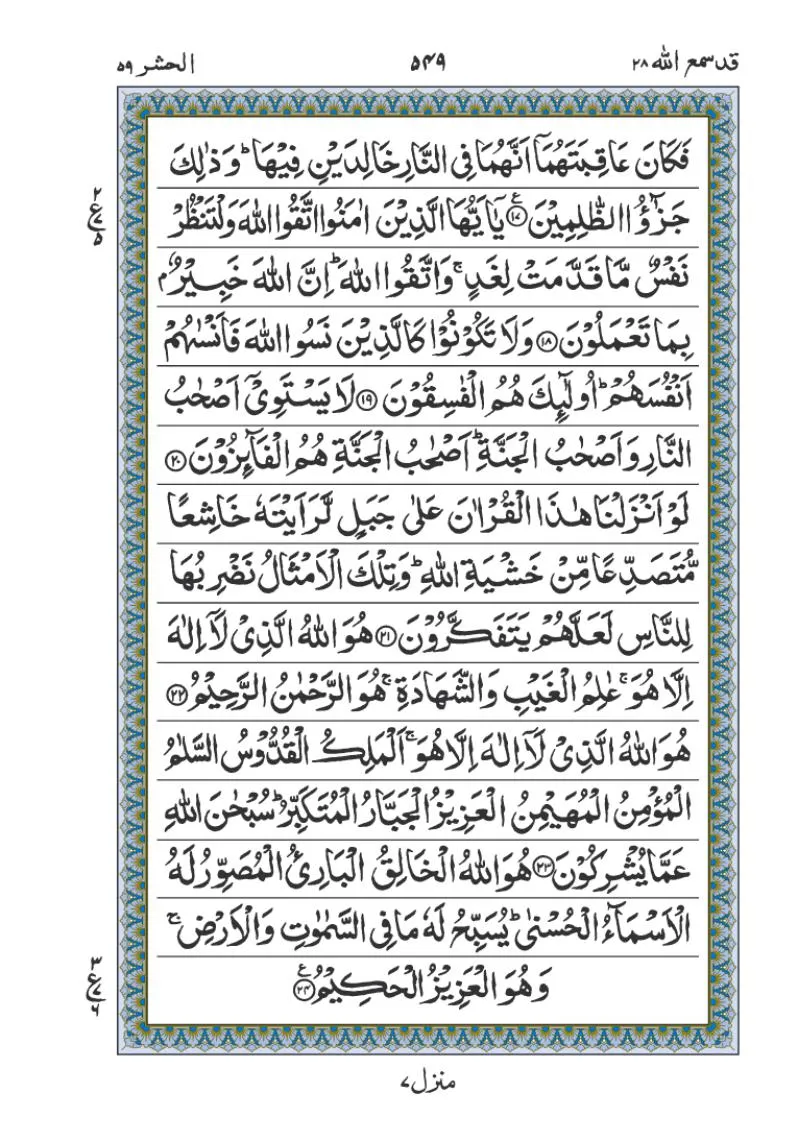 قد سمع الله ۲۸
۵۴۹
الحشر ۵۹
فَكَانَ عَاقِبَتَهُمَاۤ اَنَّهُمَا فِی النَّارِ خَالِدَیْنِ فِیْهَا ؕ وَ ذٰلِكَ
جَزٰٓؤُا الظّٰلِمِیْنَ ۠﴿۱۷﴾ یٰۤاَیُّهَا الَّذِیْنَ اٰمَنُوا اتَّقُوا اللّٰهَ وَ لْتَنْظُرْ
نَفْسٌ مَّا قَدَّمَتْ لِغَدٍ ۚ وَ اتَّقُوا اللّٰهَ ؕ اِنَّ اللّٰهَ خَبِیْرٌۢ
بِمَا تَعْمَلُوْنَ ﴿۱۸﴾ وَ لَا تَكُوْنُوْا كَالَّذِیْنَ نَسُوا اللّٰهَ فَاَنْسٰىهُمْ
اَنْفُسَهُمْ ؕ اُولٰٓىِٕكَ هُمُ الْفٰسِقُوْنَ ﴿۱۹﴾ لَا یَسْتَوِیْۤ اَصْحٰبُ
النَّارِ وَ اَصْحٰبُ الْجَنَّةِ ؕ اَصْحٰبُ الْجَنَّةِ هُمُ الْفَآىِٕزُوْنَ ﴿۲۰﴾
لَوْ اَنْزَلْنَا هٰذَا الْقُرْاٰنَ عَلٰی جَبَلٍ لَّرَاَیْتَهٗ خَاشِعًا
مُّتَصَدِّعًا مِّنْ خَشْیَةِ اللّٰهِ ؕ وَ تِلْكَ الْاَمْثَالُ نَضْرِبُهَا
لِلنَّاسِ لَعَلَّهُمْ یَتَفَكَّرُوْنَ ﴿۲۱﴾ هُوَ اللّٰهُ الَّذِیْ لَاۤ اِلٰهَ
اِلَّا هُوَ ۚ عٰلِمُ الْغَیْبِ وَ الشَّهَادَةِ ۚ هُوَ الرَّحْمٰنُ الرَّحِیْمُ ﴿۲۲﴾
هُوَ اللّٰهُ الَّذِیْ لَاۤ اِلٰهَ اِلَّا هُوَ ۚ اَلْمَلِكُ الْقُدُّوْسُ السَّلٰمُ
الْمُؤْمِنُ الْمُهَیْمِنُ الْعَزِیْزُ الْجَبَّارُ الْمُتَكَبِّرُ ؕ سُبْحٰنَ اللّٰهِ
عَمَّا یُشْرِكُوْنَ ﴿۲۳﴾ هُوَ اللّٰهُ الْخَالِقُ الْبَارِئُ الْمُصَوِّرُ لَهُ
الْاَسْمَآءُ الْحُسْنٰی ؕ یُسَبِّحُ لَهٗ مَا فِی السَّمٰوٰتِ وَ الْاَرْضِ ۚ
وَ هُوَ الْعَزِیْزُ الْحَكِیْمُ ۠﴿۲۴﴾
۲
ع
۵
۳
ع
۶
منزل ۷